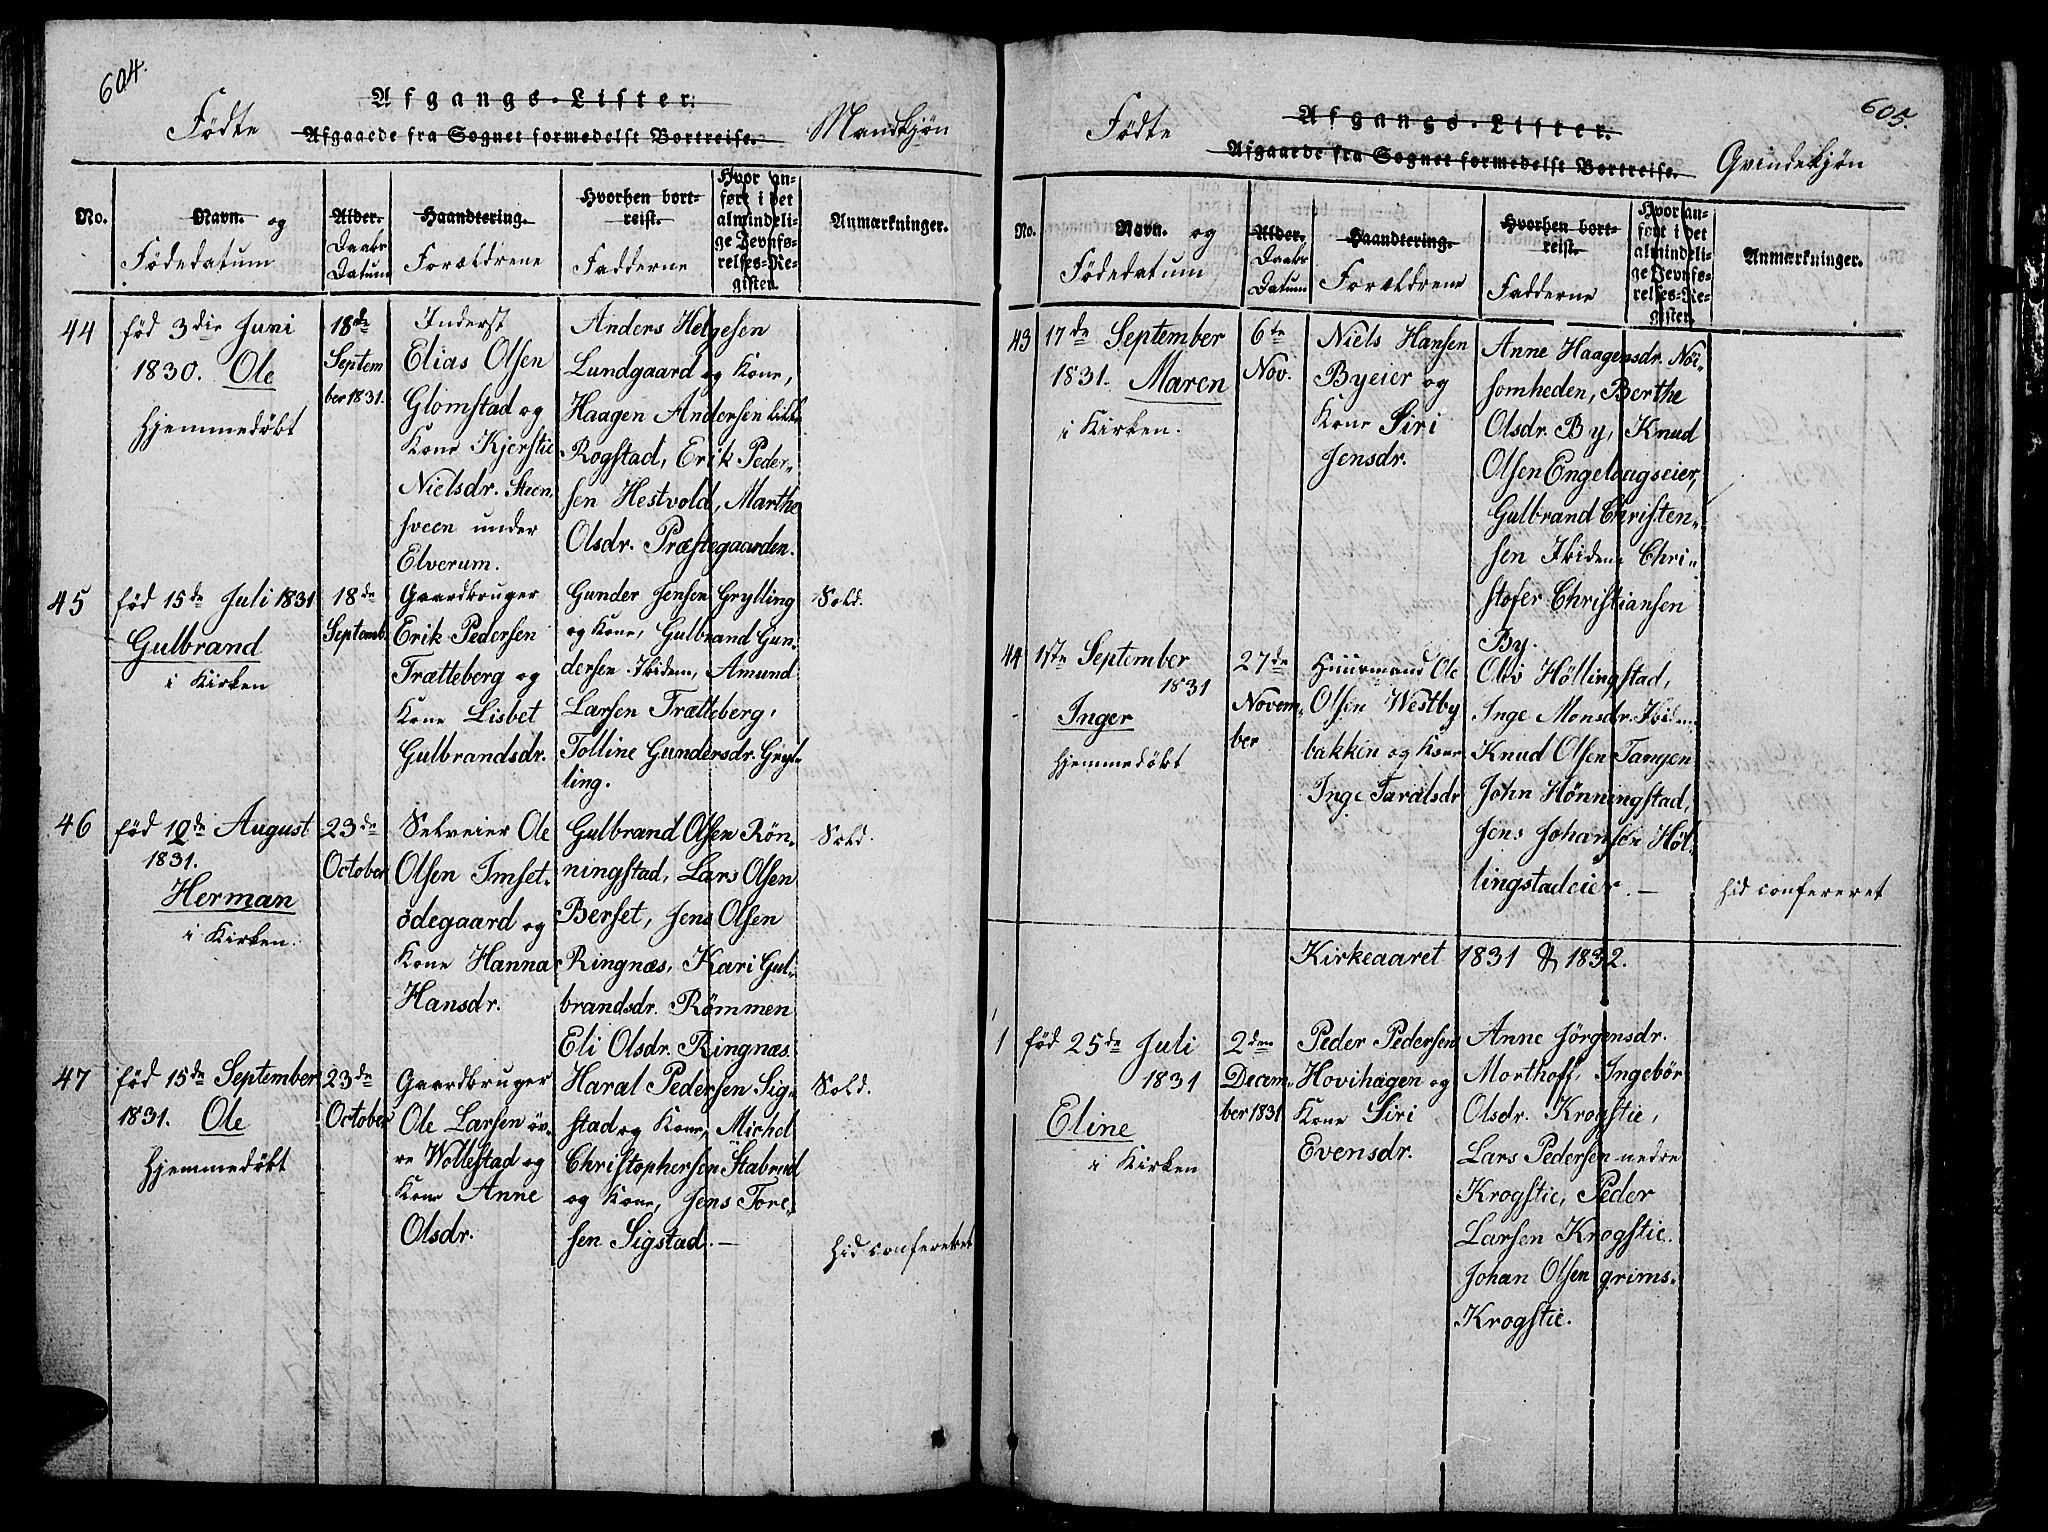 604.
Afgangs-Lister.
Fødte
Afgaaede fra Sognet formedelst Bortreise.
Mandkjøn
No.
Navn. og
Fødedatum
Alder.
Daabs
Datum
Haandtering.
Forældrene
Hvorhen bort-
reist.
Fadderne
Hvor an-
ført i det
almindeli-
ge Jevnfø-
relses-Re-
gister.
Anmærkninger.
44
fød 3die Juni
1830. Ole
Hjemmedøbt
18de
Septem
ber 1831.
Inderst
Elias Olsen
Glomstad og
Kone Kjerstie
Nielsdr. Steen-
sveen under
Elverum.
Anders Helgesen
Lundgaard og Kone,
Haagen Andersen
Rogstad, Erik Peder-
sen Hestvold, Marthe
Olsdr. Præstegaarden.
45
fød 15de Juli 1831
Gulbrand
i Kirken
18de
Septemb.
Gaardbruger
Erik Pedersen
Trætteberg og
Kone Lisbet
Gulbrandsdr.
Gunder Jensen Grylling
og Kone, Gulbrand Gun-
dersen Ibidem, Amund
Larsen Trætteberg,
Tolline Gundersdr. Gryl-
ling.
Sold.
46
fød 12de August
1831.
Herman
i Kirken.
23de
October
Selveier Ole
Olsen Imset-
ödegaard og
Kone Hanna
Hansdr.
Gulbrand Olsen Rön-
ningstad, Lars Olsen
Berset, Jens Olsen
Ringnæs, Kari Gul-
brandsdr. Römmen
Eli Olsdr. Ringnæs.
Sold.
47
fød 15de September
1831. Ole
Hjemmedøbt
23de
October
Gaardbruger
Ole Larsen öv-
re Wollestad og
Kone Anne
Olsdr.
Haral Pedersen Sig-
stad og Kone, Michel
Christophersen Stabrud
og Kone, Jens Tore-
sen Sigstad.—
Sold.
Hid confereret
605.
Afgangs-Lister.
Fødte
Afgaaede fra Sognet formedelst Bortreise.
Qvindekjøn
No.
Navn. og
Fødedatum
Alder.
Daabs
Datum
Haandtering.
Forældrene
Hvorhen bort-
reist.
Fadderne
Hvor an-
ført i det
almindeli-
ge Jevnfø-
relses-Re-
gister.
Anmærkninger.
43
17de September
1831. Maren
i Kirken.
6te
Nov.
Niels Hansen
Byeier og
Kone Siri
Jensdr.
Anne Haagensdr. Nöi-
somheden, Berthe
Olsdr. By, Knud
Olsen Engelaugseier,
Gulbrand Christen-
sen Ibidem Chri-
stofer Christiansen
By.
44
1ste September
1831
Inger
Hjemmedøbt
27de
Novem-
ber
Huusmand Ole
Olsen Westby
bakken og Kone
Inge Taralsdr
Oliv Höllingstad,
Inge Monsdr. Ibidem
Knud Olsen Tangen
John Hönningstad,
Jens Johansen Höl-
lingstadeier.—
Hid confereret
Kirkeaaret 1831 & 1832.
1
fød 25de Juli
1831
Eline
i Kirken
2den
Decem-
ber 1831
Peder Pedersen
Hovihagen og
Kone Siri
Evensdr.
Anne Jörgensdr.
Morthoff, Ingebör
Olsdr. Krogstie,
Lars Pedersen nedre
Krogstie, Peder
Larsen Krogstie.
Johan Olsen grims-
Krogstie.